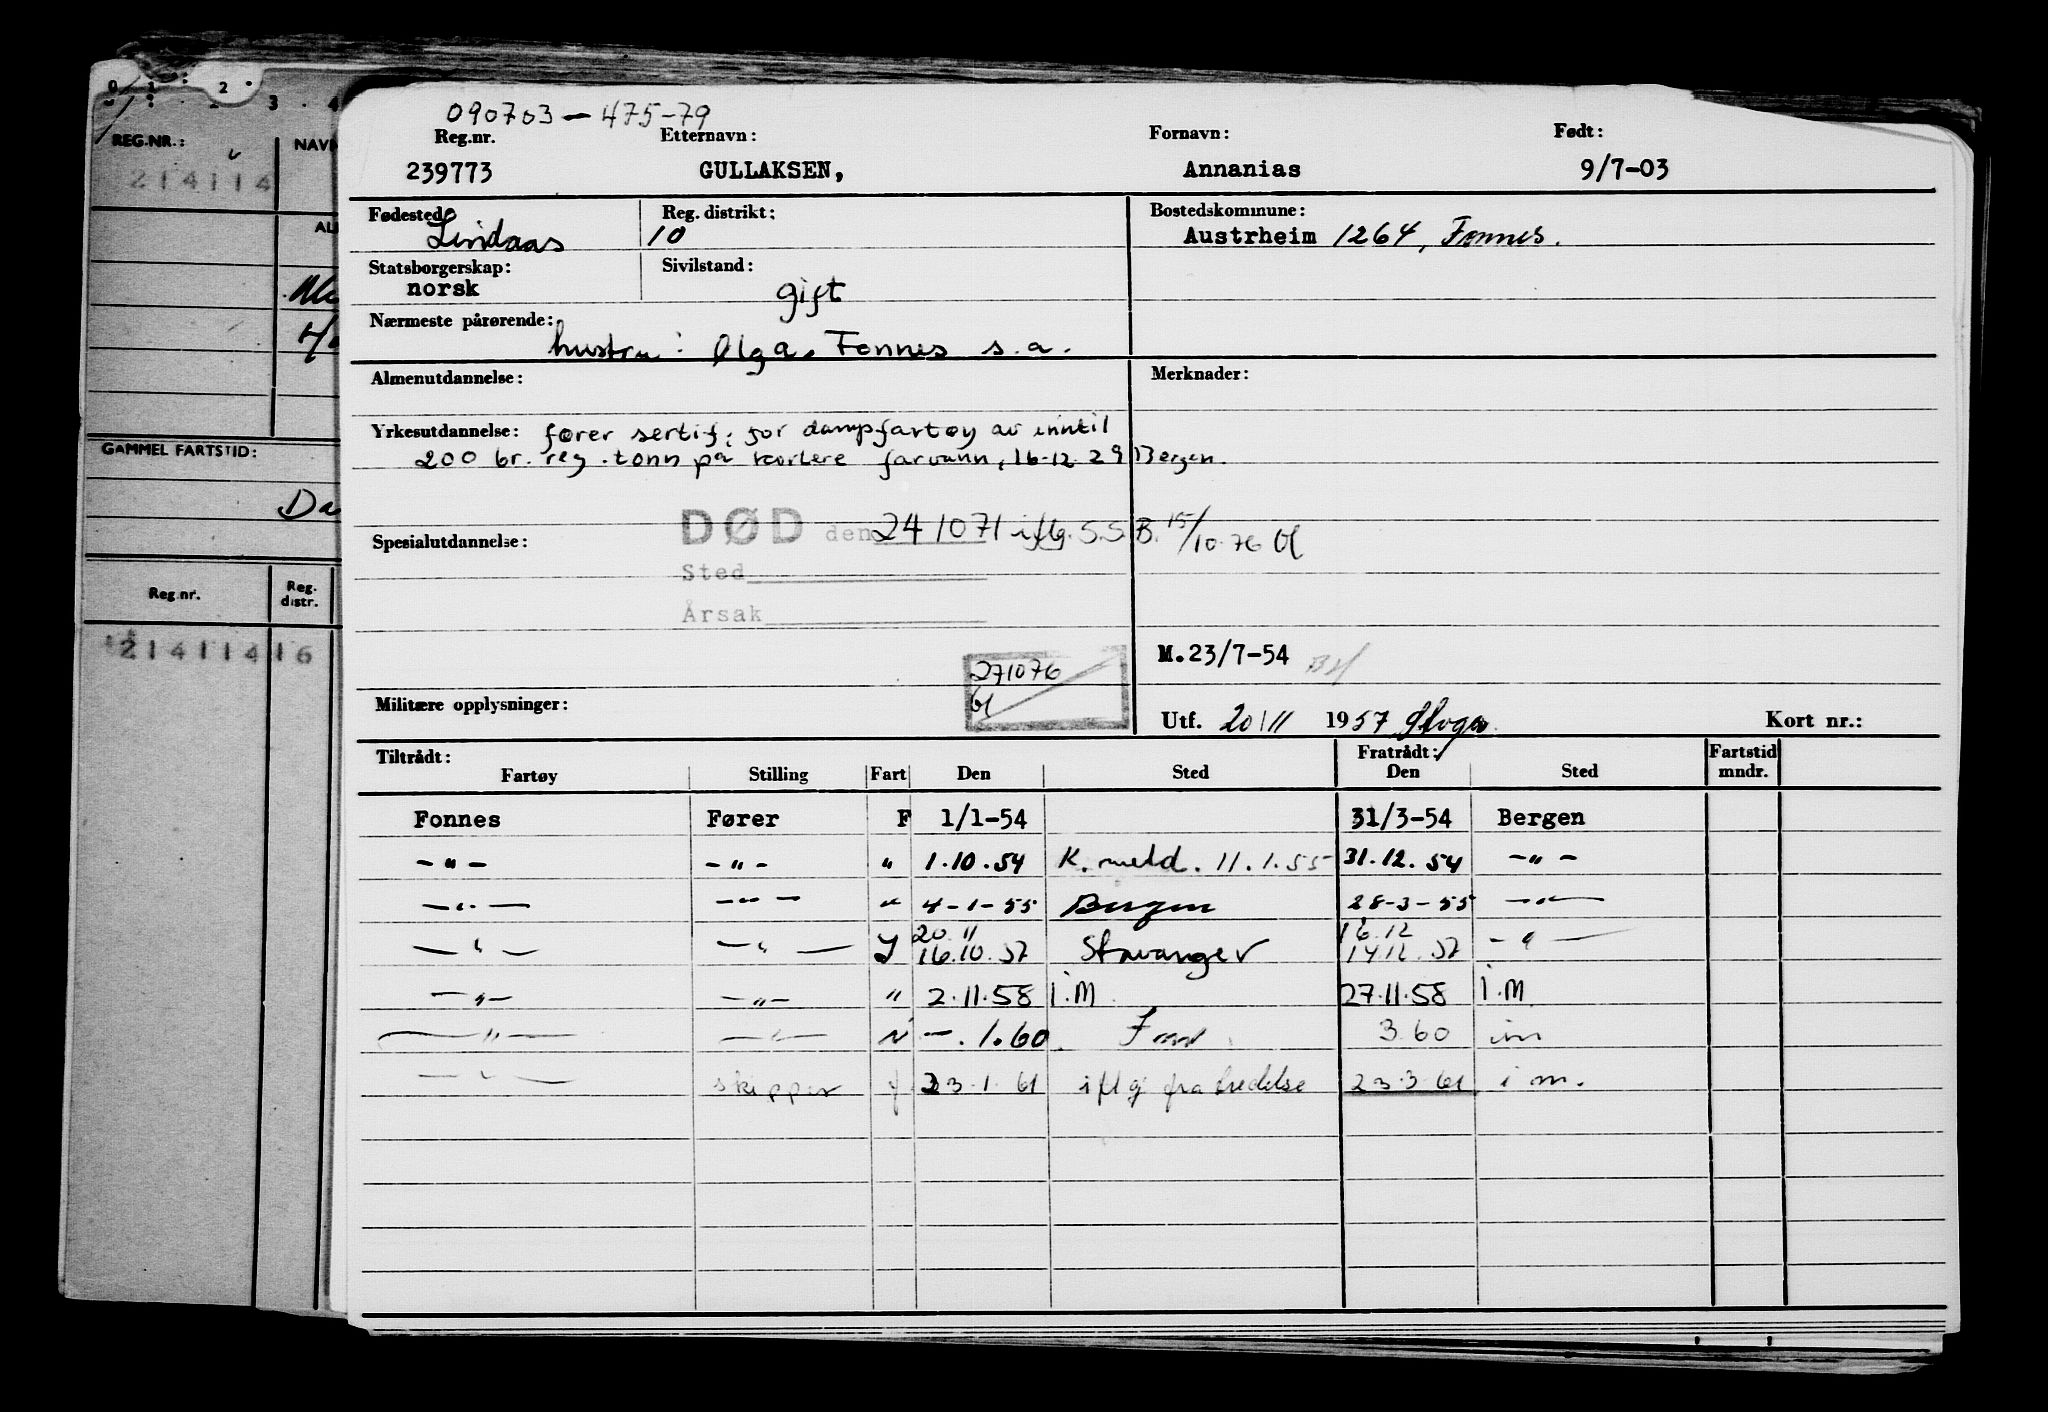 0 1 2
3 4
REG.NR.:
NAVN
214114
GAMMEL FARTSTID:
Reg.nr.
Reg. distr.
21411416
090703 — 475-79
Reg.nr. Etternavn: Fornavn: Født:
239773 GULLAKSEN, Annanias 9/7-03
Fødested: Reg. distrikt: Bostedskommune:
Lindaas 10 Austrheim 1264, Fonnes.
Statsborgerskap: Sivilstand:
norsk gift
Nærmeste pårørende:
hustru: Olga, Fonnes s.a.
Almenutdannelse: Merknader:
Yrkesutdannelse: fører sertif. for dampfartøy av inntil
200 br. reg. tonn på kortere farvann, 16-12 29 Bergen.
DØD den 241071 iflg. S.S.B. 15/10.76
Spesialutdannelse:
Sted
Årsak
M.23/7-54
271076
Militære opplysninger:
Utf. 20/11 1957 Kort nr.:
Tiltrådt: Fratrådt: Fartstid
Fartøy Stilling Fart Den Sted Den Sted mndr.
Fonnes Fører F 1/1-54 31/3-54 Bergen
-"- -"- " 1.10.54 K.meld. 11.1.55 31.12.54 -"-
-"- -"- " 4-1-55 Bergen 28-3-55 -"-
20 11 16.12
-"- -"- 16.10.57 Stavanger 1412.57 -"-
-"- -"- " 2.11.58 i.M. 27.11.58 i.M
-"- -"- -.1.60 3.60 im
-"- skipper f 23.1.61 iflg fratredelse 23.3.61 i m.